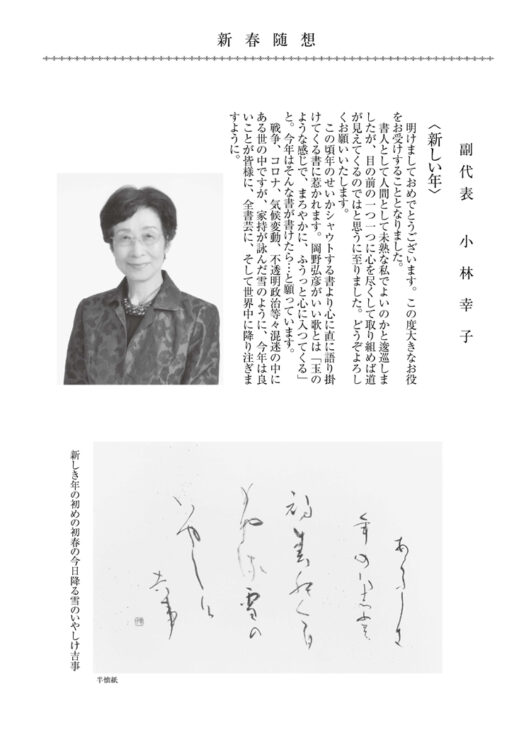 新春随想
副代表 小林幸子
〈新しい年〉
明けましておめでとうございます。この度大きなお役
をお受けすることとなりました。
書人として人間として未熟な私でよいのかと逡巡しま
したが、目の前の一つ一つに心を尽くして取り組めば道
が見えてくるのではと思うに至りました。どうぞよろし
くお願いいたします。
この頃年のせいかシャウトする書より心に直に語り掛
けてくる書に惹かれます。岡野弘彦がいい歌とは「玉の
ような感じで、まろやかに、ふうっと心に入つてくる」
と。今年はそんな書が書けたら…と願っています。
戦争、コロナ、気候変動、不透明政治等々混迷の中に
ある世の中ですが、家持が詠んだ雪のように、今年は良
いことが皆様に、全書芸に、そして世界中に降り注ぎま
すように。
新しき年の初めの初春の今日降る雪のいやしけ吉事
半懐紙